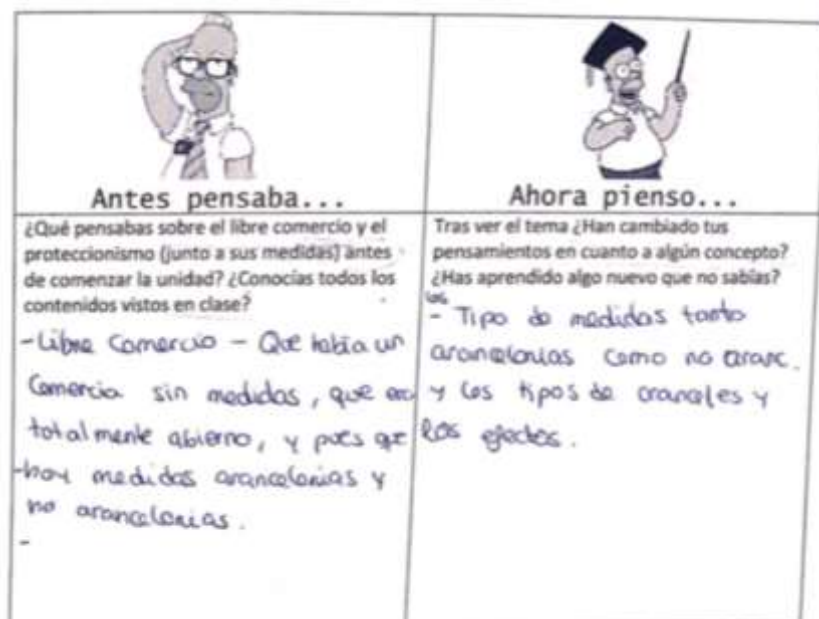 Antes pensaba...
¿Qué pensabas sobre el libre comercio y el
proteccionismo (junto a sus medidas) antes
de comenzar la unidad? ¿Conocías todos los
contenidos vistos en clase?
- Libre Comercio - Que había un
Comercia sin medidas, que era
totalmente abierno, y pues que
- hay medidas arancelarias y
no arancelarias.
-
Ahora pienso...
Tras ver el tema ¿Han cambiado tus
pensamientos en cuanto a algún concepto?
¿Has aprendido algo nuevo que no sabías?
los
- Tipo de medidas tanto
arancelarias como no aranc.
y los tipos de aranceles y
los efectos.